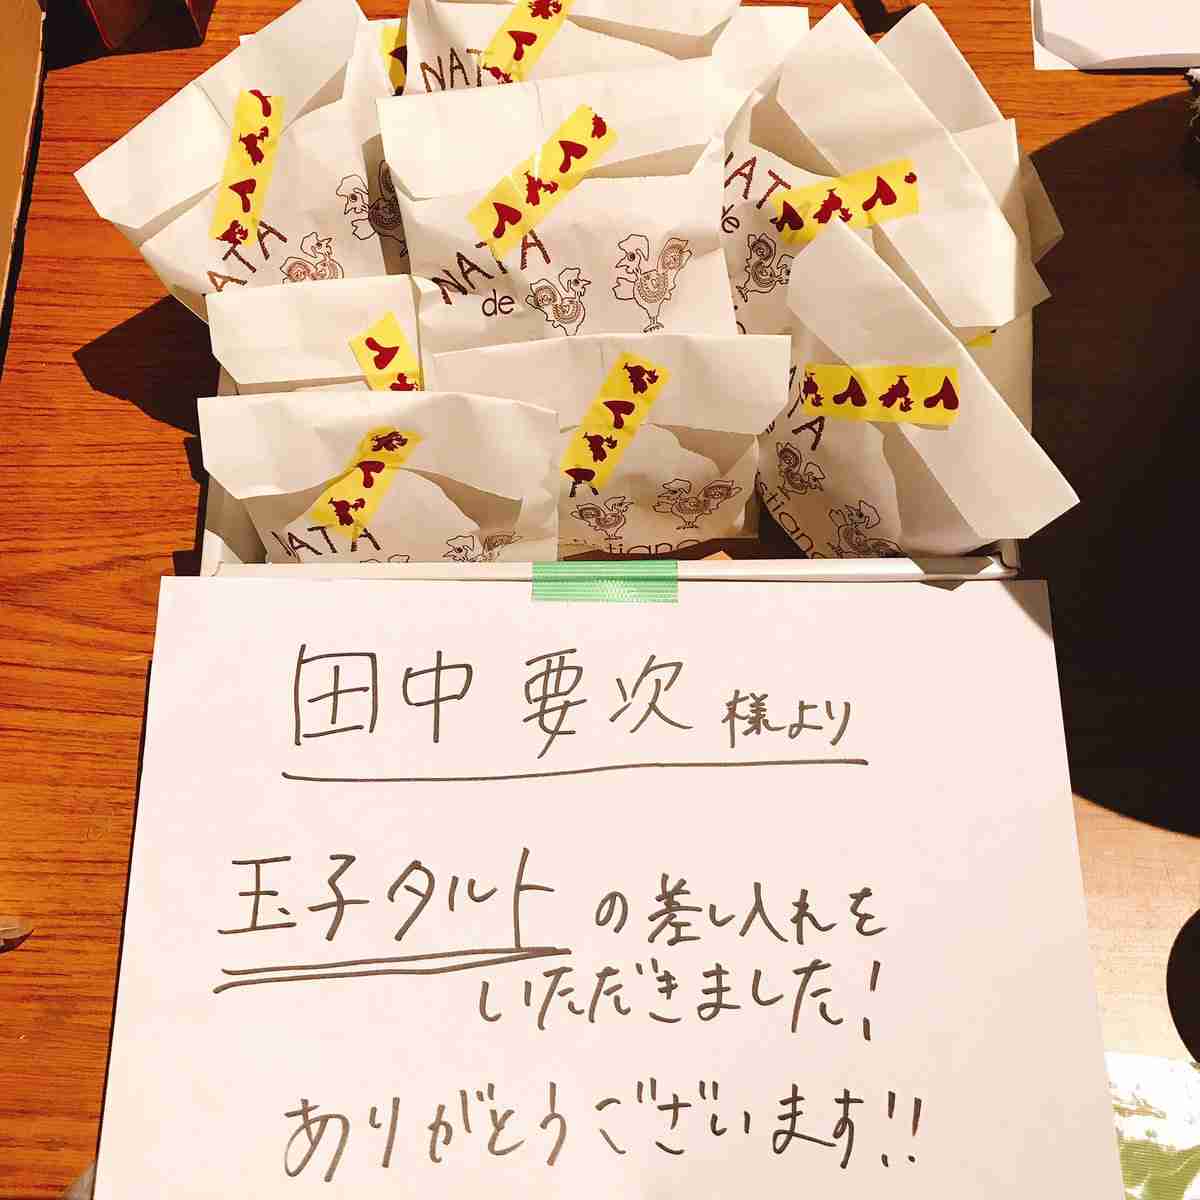 NATA
NATA
NATA
de
NATA
de
NATA
stiano
stiano
田中 要次 様より
玉子タルト の差し入れを
いただきました!
ありがとうございます!!